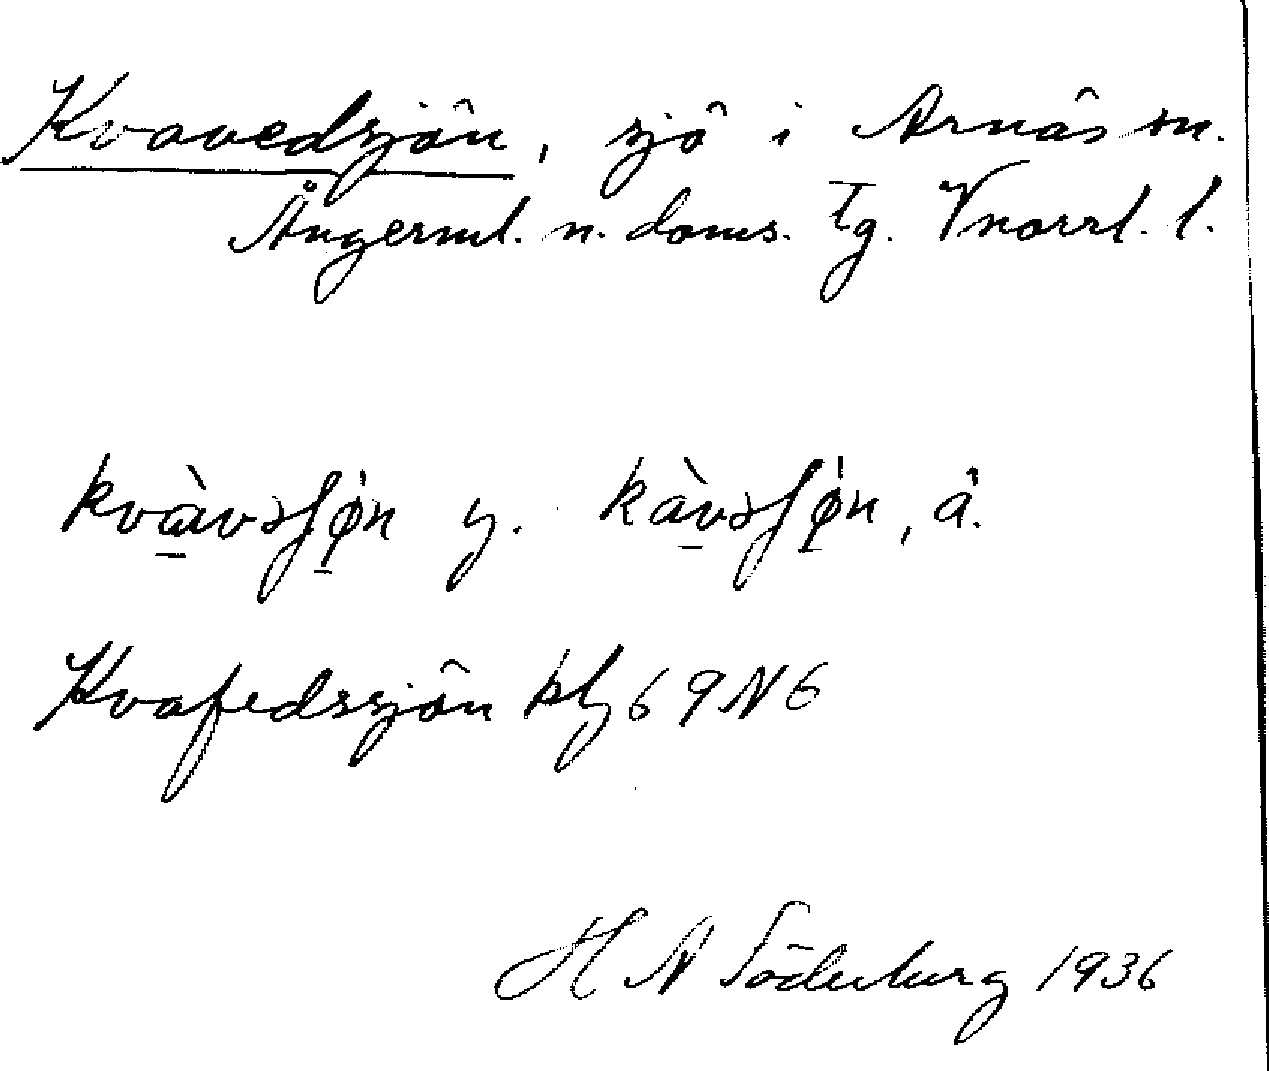 Kvavedsjön, sjö i Arnäs sn.
Ångerml. n. doms. Tg. Vnorrl. l.
kvàvəsʃø̀n y. kàvəsʃø̀n, ä.
Kvafedssjön kbl 69 N 6
H N Söderberg 1936